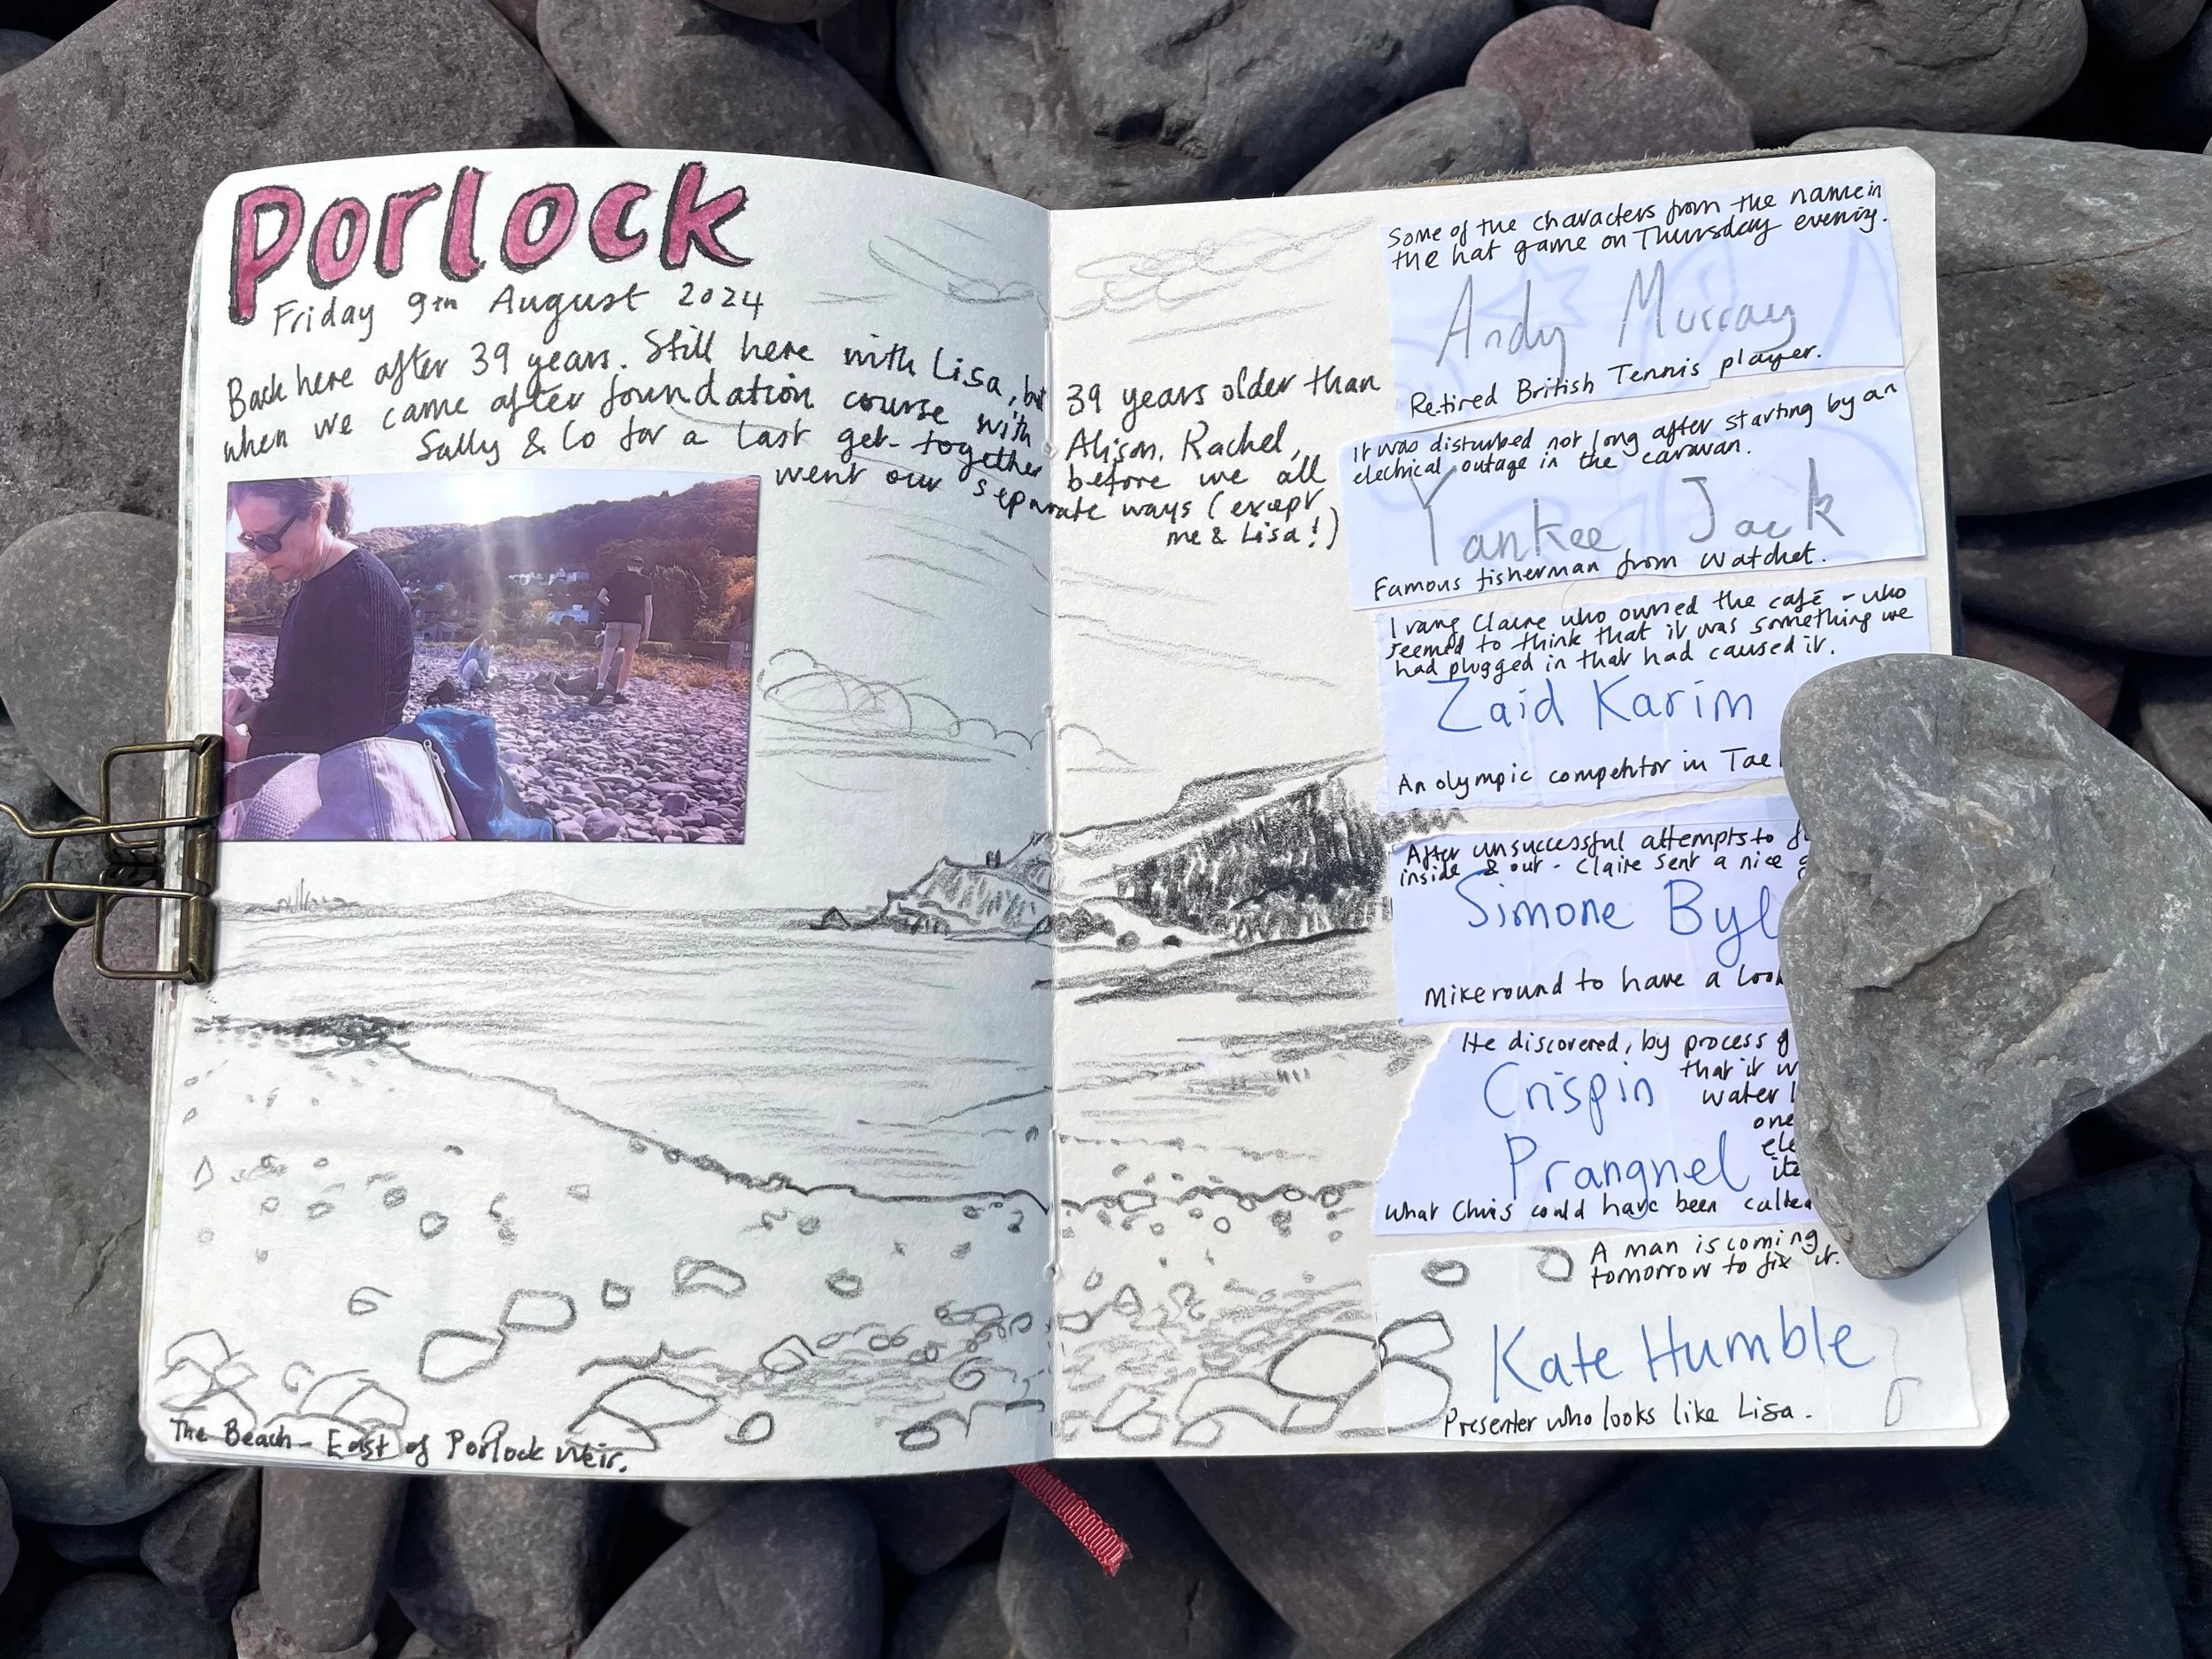 Porlock
Friday 9th August 2024
Back here after 39 years. Still here with Lisa, but 39 years older than
when we came after foundation course with Alison, Rachel,
Sally & Co for a last get-together before we all
went our separate ways (except
me & Lisa!)
The Beach - East of Porlock Weir.
Some of the characters from the name in
the hat game on Thursday evening.
Andy Murray
Retired British Tennis player.
It was disturbed not long after starting by an
electrical outage in the caravan.
Yankee Jack
Famous fisherman from Watchet.
I rang Claire who owned the café - who
seemed to think that it was something we
had plugged in that had caused it.
Zaid Karim
An olympic competitor in Tae
After unsuccessful attempts to
inside & out - Claire sent a nice
Simone Byl
Mike round to have a look
He discovered, by process
that it w
Crispin
water
one
Prangnel
ele
ite
What Chris could have been called
A man is coming
tomorrow to fix it.
Kate Humble
Presenter who looks like Lisa.